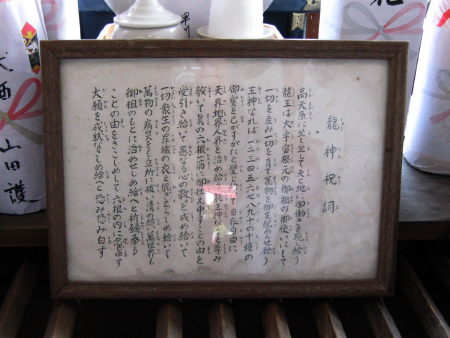 龍神祝詞
高天原に坐し坐して天と地に御働きを現し給う
龍王は大宇宙根元の御祖の御使いにして
一切を産み一切を育て萬物を御支配あらせ給う
王神なれば一二三四五六七八九十の十種の
御寶を己がすがたと変じ給いて自在自由に
天界地界人界を治め給う龍王神なるを尊み
敬いて眞の六根一筋に御仕え申すことの由を
受引き給いて愚かなる心の数々を戒め給いて
一切衆生の罪穢の衣を脱ぎさらしめ給いて
萬物の病災をも立所に祓い清め給い萬世界も
御祖のもとに治めせしめ給へと祈願奉る
ことの由をきこしめして六根の内に念じ申す
大願を成就なさしめ給へと恐み恐み白す
山田護
酒